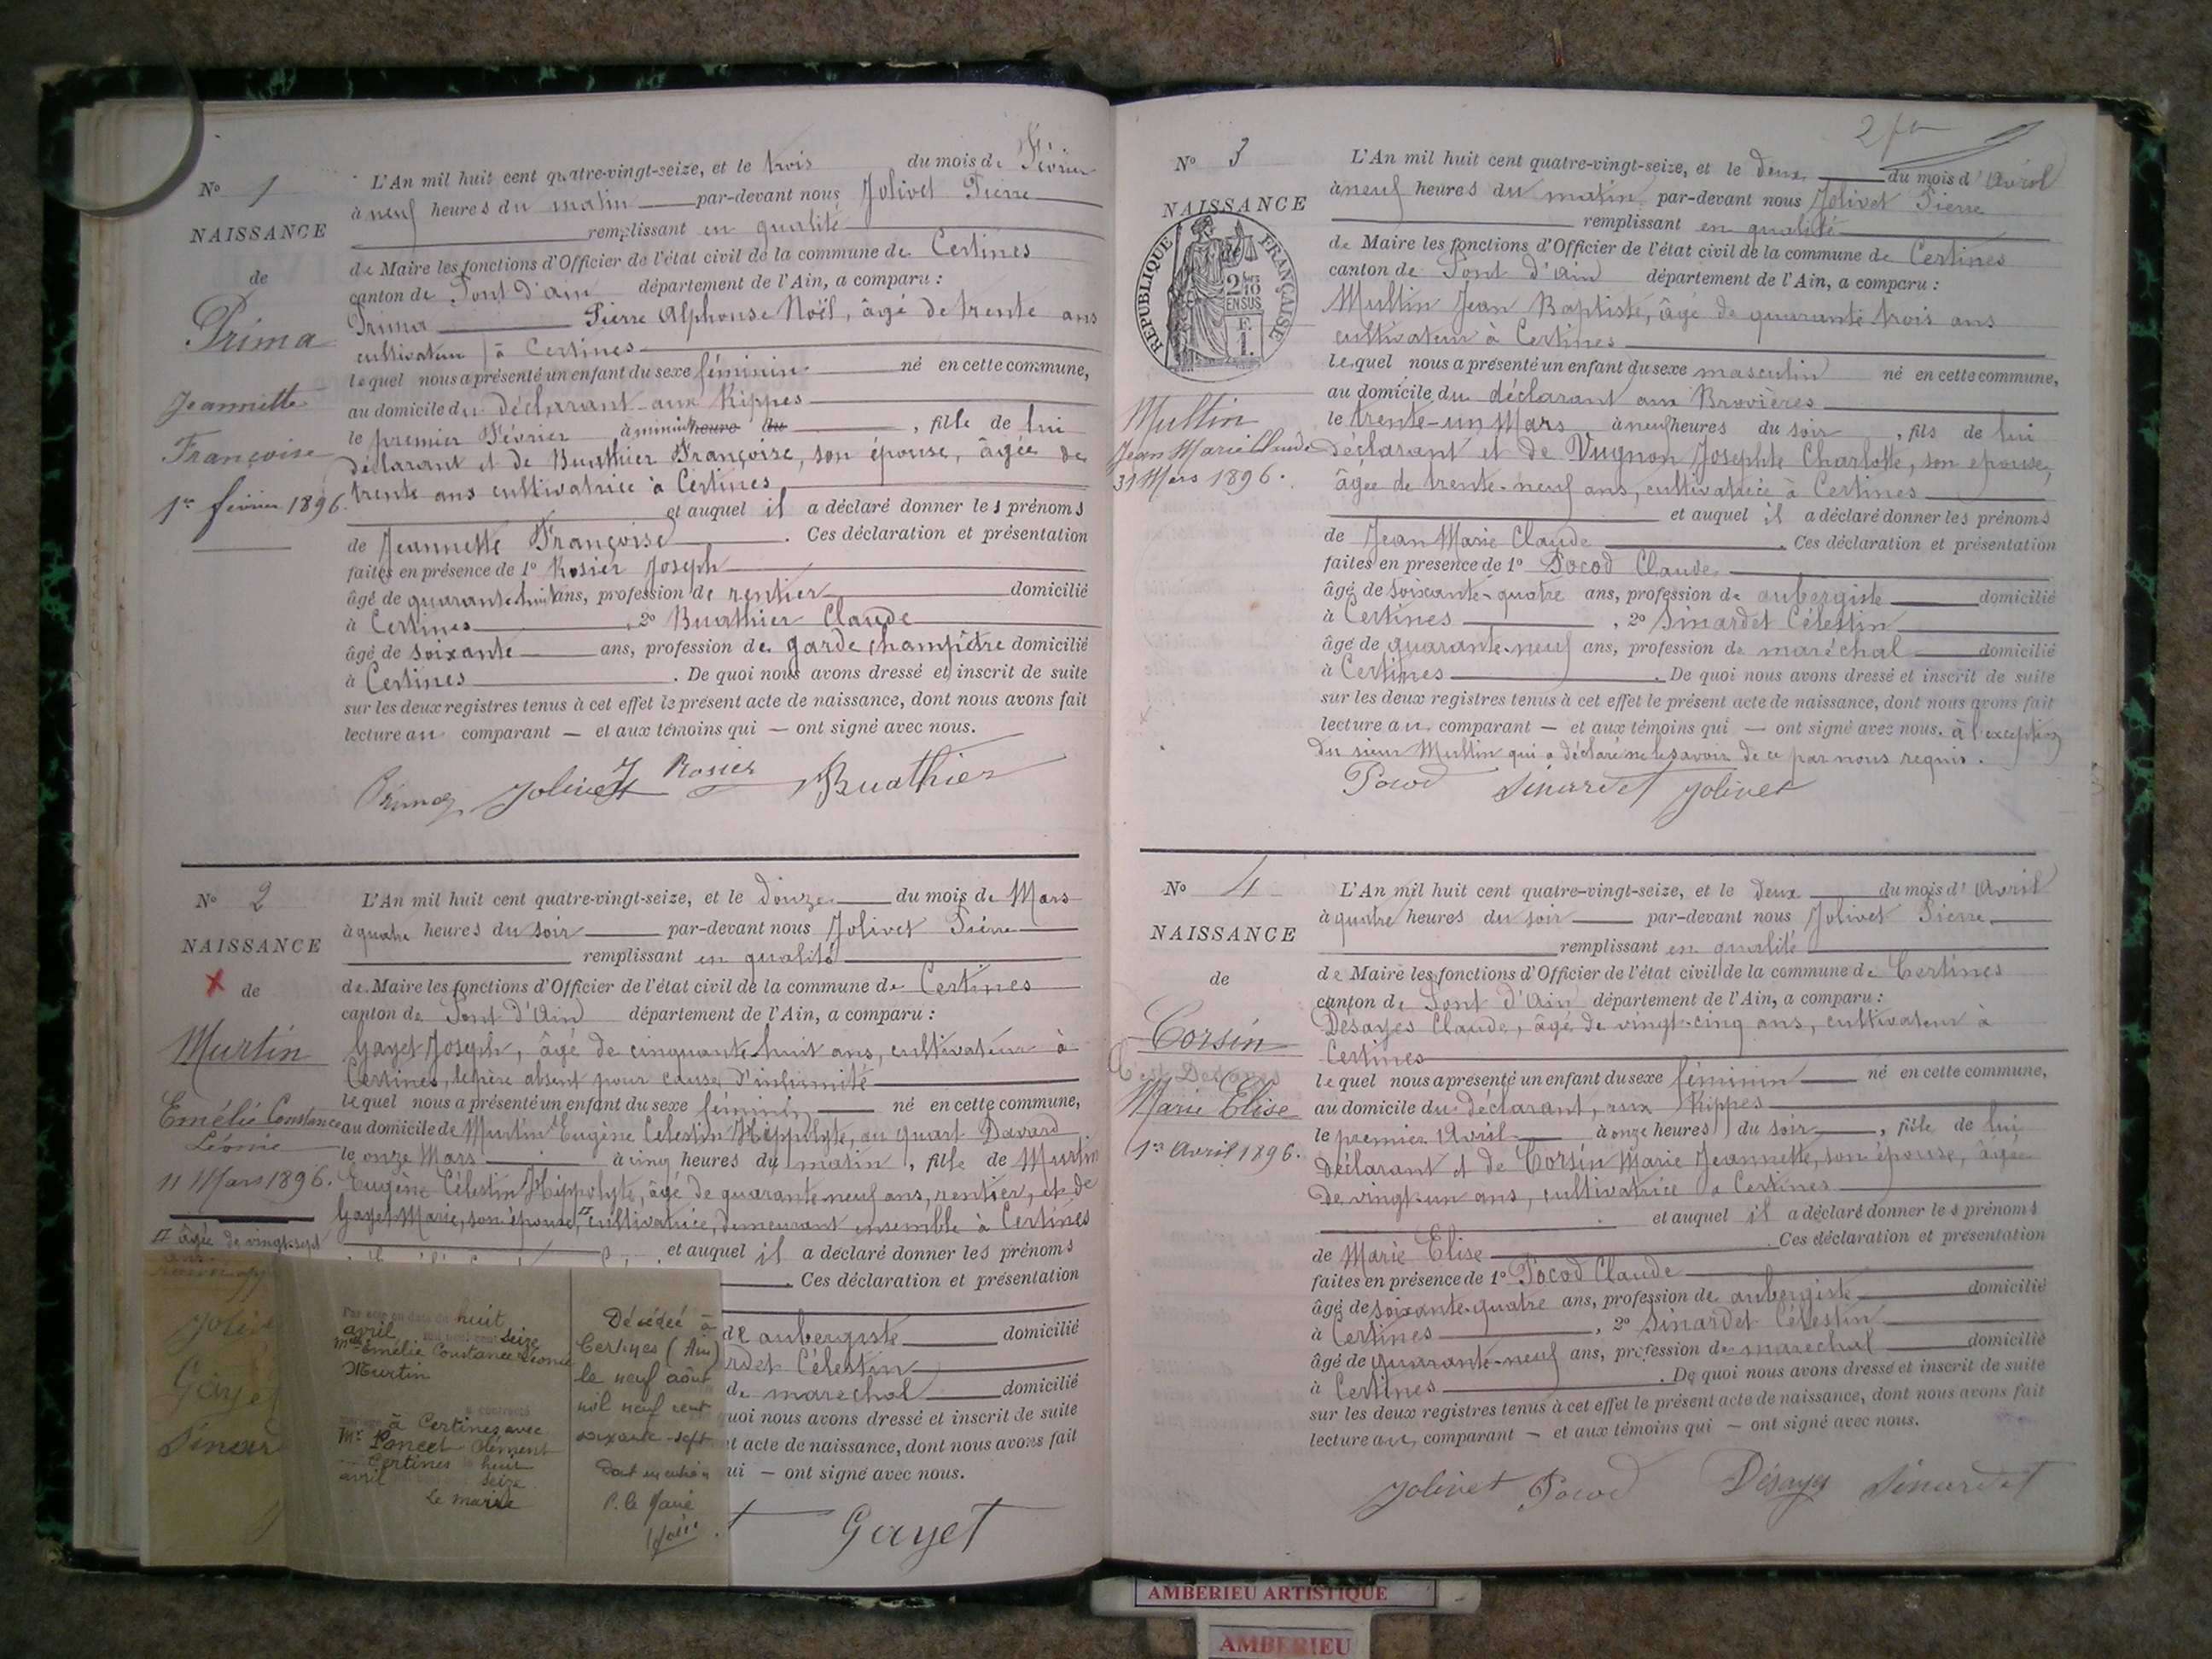 N° 1
NAISSANCE
de
Prima
Jeannette
Françoise
1er février 1896.
L'An mil huit cent quatre-vingt-seize, et le trois du mois de Février
à neuf heures du matin par-devant nous Jolivet Pierre
remplissant en qualité
de Maire les fonctions d'Officier de l'état civil de la commune de Certines
canton de Pont d'ain département de l'Ain, a comparu :
Prima Pierre Alphonse Noël, âgé de trente ans
cultivateur à Certines
lequel nous a présenté un enfant du sexe féminin né en cette commune,
au domicile du déclarant aux Rippes
le premier Février à minuit heure du , fille de lui
déclarant et de Buathier Françoise, son épouse, âgée de
trente ans cultivatrice à Certines
et auquel il a déclaré donner les prénoms
de Jeannette Françoise . Ces déclaration et présentation
faites en présence de 1° Rosier Joseph
âgé de quarante huit ans, profession de rentier domicilié
à Certines , 2° Buathier Claude
âgé de soixante ans, profession de garde champêtre domicilié
à Certines . De quoi nous avons dressé et inscrit de suite
sur les deux registres tenus à cet effet le présent acte de naissance, dont nous avons fait
lecture au comparant — et aux témoins qui — ont signé avec nous.
Prima Jolivet J Rosier Buathier
N° 2
NAISSANCE
de
Murtin
Emélie Constance
Léonie
11 Mars 1896.
âgée de vingt-sept
ans
L'An mil huit cent quatre-vingt-seize, et le douze du mois de Mars
à quatre heures du soir par-devant nous Jolivet Pierre
remplissant en qualité
de Maire les fonctions d'Officier de l'état civil de la commune de Certines
canton de Pont d'Ain département de l'Ain, a comparu :
Gayet Joseph, âgé de cinquante huit ans, cultivateur à
Certines, le père absent pour cause d'infirmité
lequel nous a présenté un enfant du sexe féminin né en cette commune,
au domicile de Murtin Eugène Célestin Hippolyte, au quart Davard
le onze Mars à cinq heures du matin , fille de Murtin
Eugène Célestin Hippolyte, âgé de quarante neuf ans, rentier, et de
Gayet Marie, son épouse, cultivatrice, demeurant ensemble à Certines
et auquel il a déclaré donner les prénoms
Ces déclaration et présentation
de aubergiste domicilié
rdet Célestin
de maréchal domicilié
uoi nous avons dressé et inscrit de suite
t acte de naissance, dont nous avons fait
ui — ont signé avec nous.
t Gayet
Jolive
Gayet
Sinard
Par acte en date du huit
avril mil neuf cent seize
Mlle Emélie Constance Léonie
Murtin
a contracté
mariage à Certines avec
Mr Poncet Clément
Certines le huit
avril seize
Le maire
Décédée à
Certines (Ain)
le neuf août
mil neuf cent
soixante-sept
Dont mention
P. le Maire
N° 3
NAISSANCE
RÉPUBLIQUE FRANÇAISE
2/10
EN SUS
F.
1.
Multin
Jean Marie Claude
31 Mars 1896.
L'An mil huit cent quatre-vingt-seize, et le deux du mois d'Avril
à neuf heures du matin par-devant nous Jolivet Pierre
remplissant en qualité
de Maire les fonctions d'Officier de l'état civil de la commune de Certines
canton de Pont d'Ain département de l'Ain, a comparu :
Multin Jean Baptiste, âgé de quarante trois ans
cultivateur à Certines
lequel nous a présenté un enfant du sexe masculin né en cette commune,
au domicile du déclarant aux Brovières
le trente-un Mars à neuf heures du soir , fils de lui
déclarant et de Vugnon Josephte Charlotte, son épouse,
âgée de trente-neuf ans, cultivatrice à Certines
et auquel il a déclaré donner les prénoms
de Jean Marie Claude . Ces déclaration et présentation
faites en présence de 1° Pocod Claude
âgé de soixante-quatre ans, profession de aubergiste domicilié
à Certines , 2° Sinardet Célestin
âgé de quarante-neuf ans, profession de maréchal domicilié
à Certines . De quoi nous avons dressé et inscrit de suite
sur les deux registres tenus à cet effet le présent acte de naissance, dont nous avons fait
lecture au comparant — et aux témoins qui — ont signé avec nous. à l'exception
du sieur Multin qui a déclaré ne le savoir de ce par nous requis.
Pocod Sinardet Jolivet
N° 4
NAISSANCE
de
Corsin
Marie Elise
1er Avril 1896.
L'An mil huit cent quatre-vingt-seize, et le deux du mois d'Avril
à quatre heures du soir par-devant nous Jolivet Pierre
remplissant en qualité
de Maire les fonctions d'Officier de l'état civil de la commune de Certines
canton de Pont d'Ain département de l'Ain, a comparu :
Desayes Claude, âgé de vingt-cinq ans, cultivateur à
Certines
lequel nous a présenté un enfant du sexe féminin né en cette commune,
au domicile du déclarant, aux Rippes
le premier Avril à onze heures du soir , fille de lui
déclarant et de Corsin Marie Jeannette, son épouse, âgée
de vingt-un ans, cultivatrice à Certines
et auquel il a déclaré donner les prénoms
de Marie Elise . Ces déclaration et présentation
faites en présence de 1° Pocod Claude
âgé de soixante-quatre ans, profession de aubergiste domicilié
à Certines , 2° Sinardet Célestin
âgé de quarante-neuf ans, profession de maréchal domicilié
à Certines . De quoi nous avons dressé et inscrit de suite
sur les deux registres tenus à cet effet le présent acte de naissance, dont nous avons fait
lecture au comparant — et aux témoins qui — ont signé avec nous.
Jolivet Pocod Désayes Sinardet
AMBERIEU ARTISTIQUE
AMBERIEU